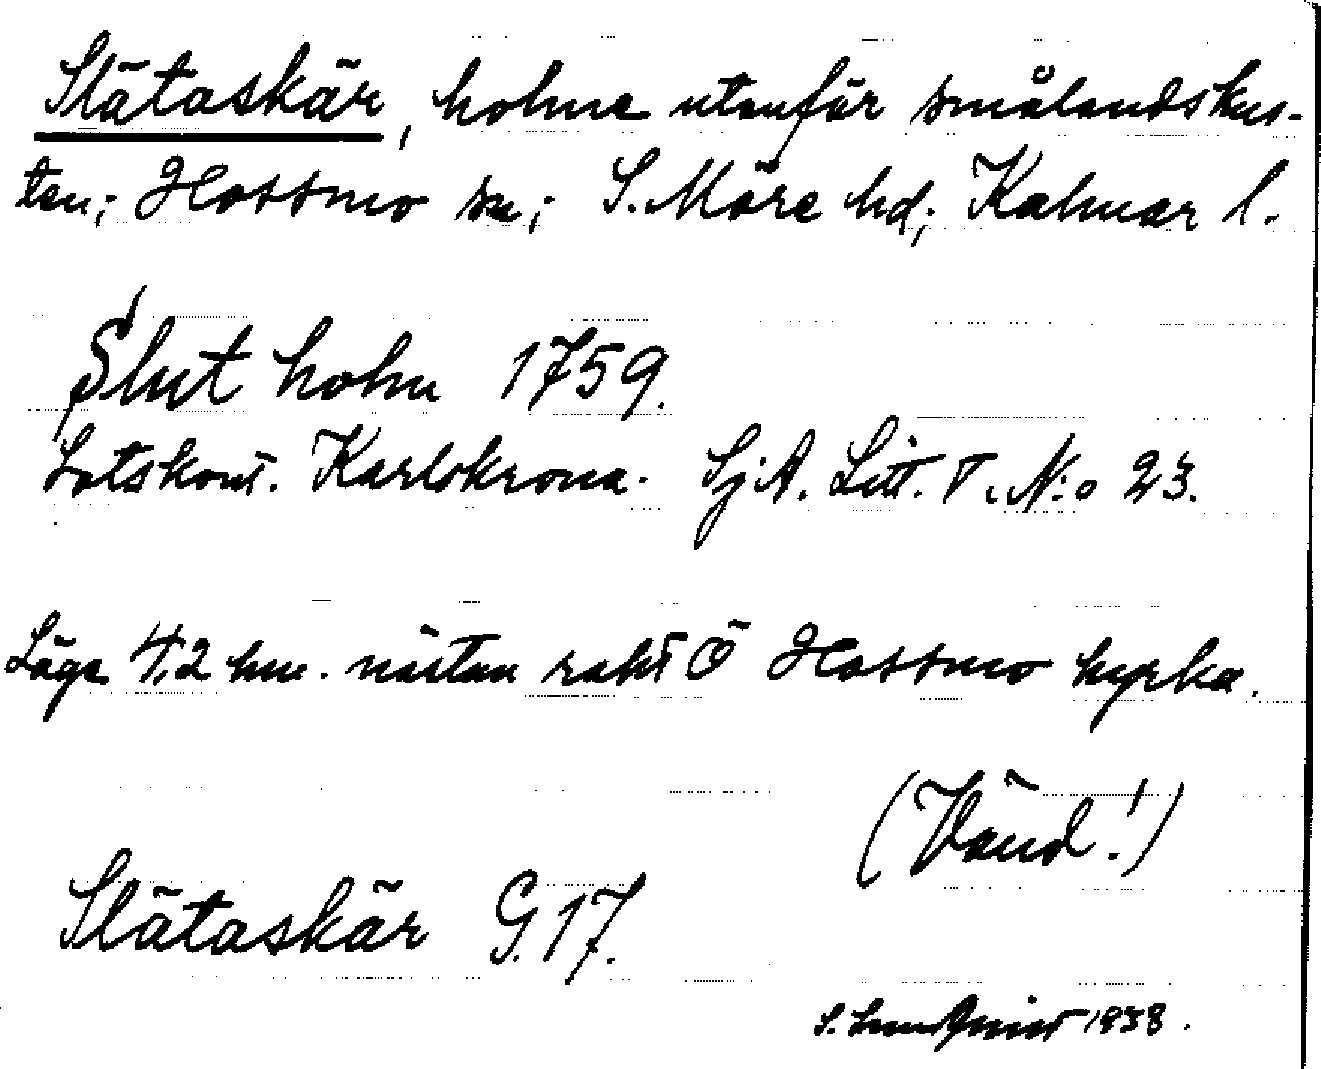 Slätaskär, holme utanför smålandskus-
ten; Hossmo sn; S. Möre hd; Kalmar l.
Slut holm 1759.
Lotskont. Karlskrona. SjA. Litt. T. N:o 23.
Läge 4,2 km. nästan rakt Ö Hossmo kyrka.
(Vänd!)
Slätaskär G. 17.
S. Lundqvist 1938.